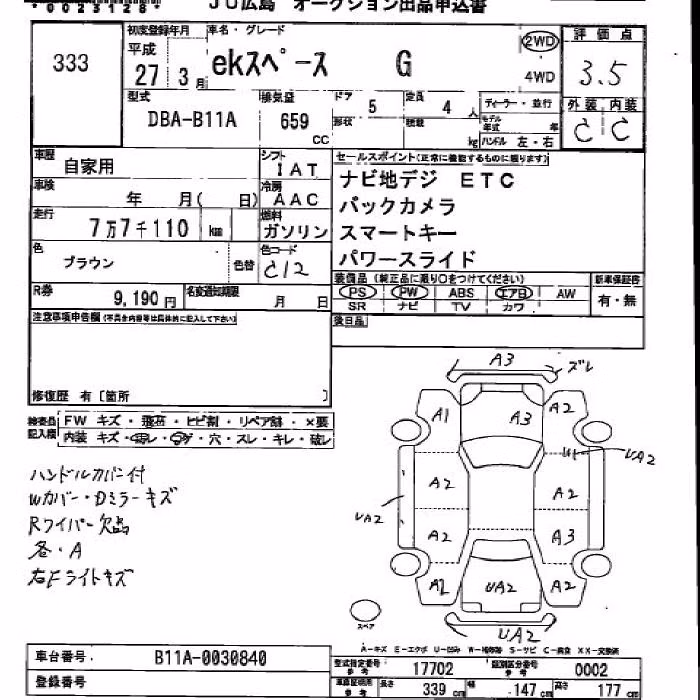 *00231281*
JU広島 オークション出品申込書
333
初度登録年月
平成
27年 3月
車名・グレード
ekスペース G
2WD
4WD
評価点
3.5
外装 内装
C C
型式
DBA-B11A
排気量
659 CC
ドア 5
定員 4 人
形状
積載 kg
ディーラー・並行
モデル年式 年
ハンドル 左・右
車歴 自家用
シフト IAT
車検 年 月( 日)
冷房 AAC
走行 7万7千110 km
燃料 ガソリン
色 ブラウン
色替
色コード C12
R券 9,190円
名変通知期限 月 日
セールスポイント(正常に機能するものに限ります)
ナビ地デジ ETC
バックカメラ
スマートキー
パワースライド
装備品(純正品に限り○をつけてください)
PS PW ABS エアB AW
SR ナビ TV カワ
新車保証書
有・無
後日品
注意事項申告欄(不具合内容等は具体的に記入して下さい)
修復歴 有〔箇所 〕
検査員記入欄
FW キズ・飛石・ヒビ割・リペア跡・×要
内装 キズ・汚レ・コゲ・穴・スレ・キレ・破レ
ハンドルカバー付
Wカバー・Dミラーキズ
Rワイパー欠品
各・A
右Fライトキズ
A3 ズレ
A1 A3 A2
UA2
A2 A2
UA2
A2 A3
A2 UA2 A2
UA2
スペア
A-キズ E-エクボ U-凹み W-補修跡 S-サビ C-腐食 XX-交換済
車台番号. B11A-0030840
登録番号
型式指定番号 参考 17702
類別区分番号 参考 0002
車検証明用 参考
長さ 339 cm
幅 147 cm
高さ 177 cm